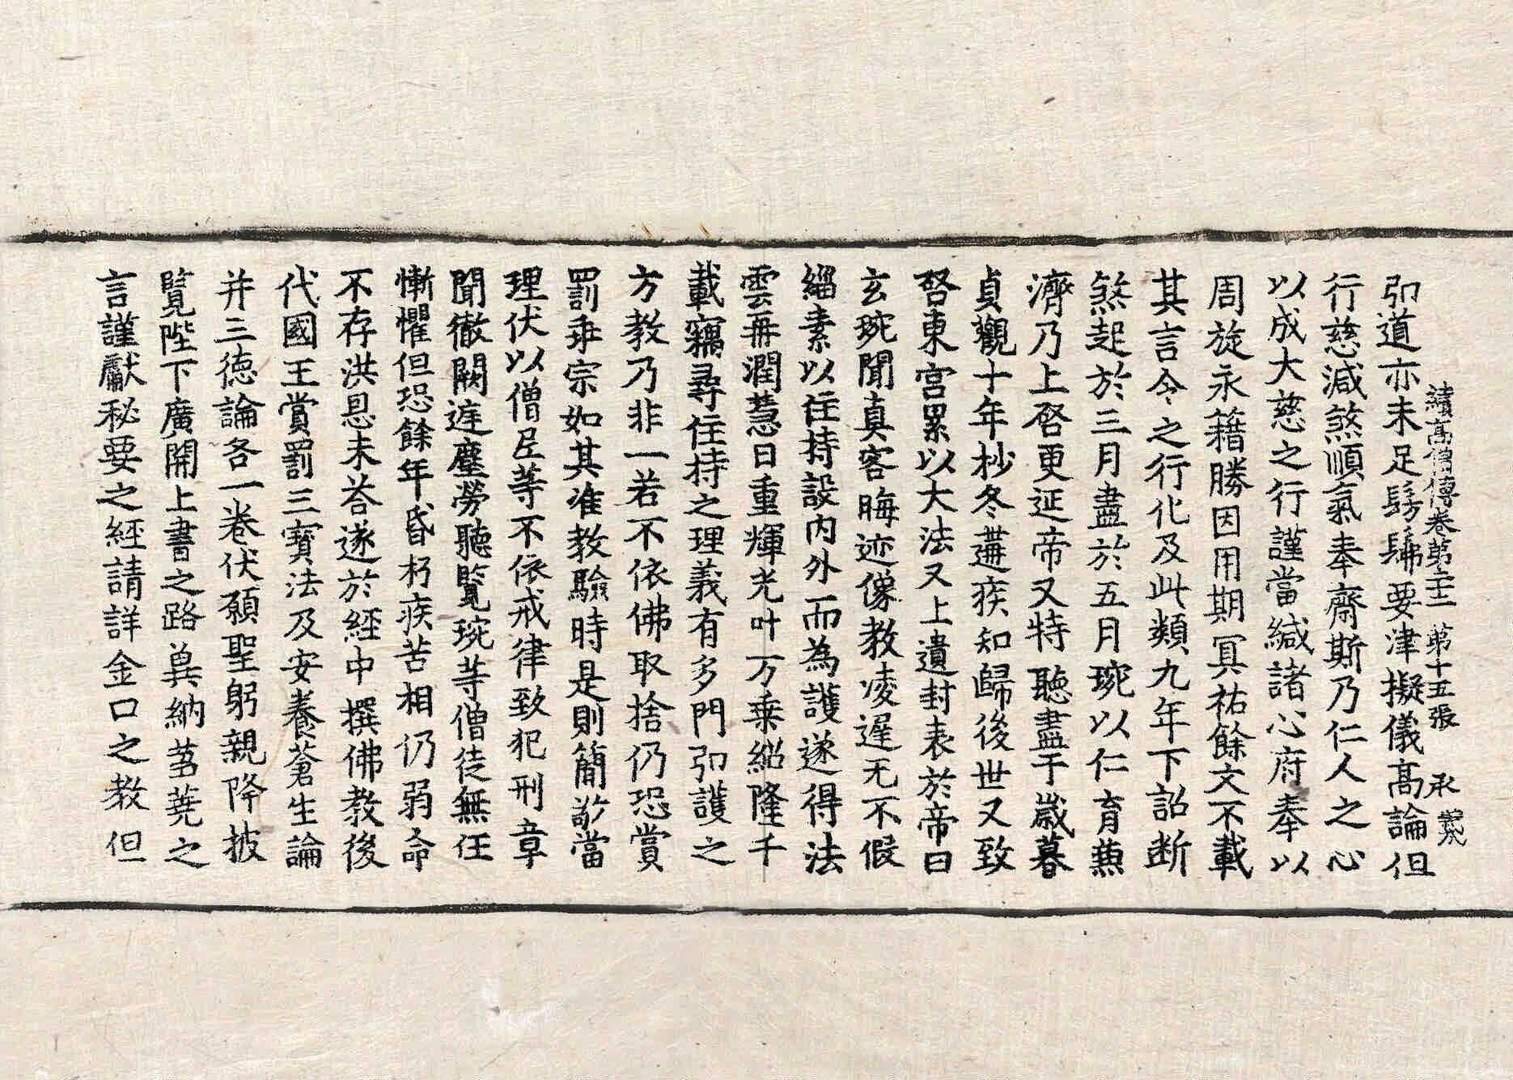 續高僧傳卷第二十二 第十五張 承
弘道亦未足髣髴要津擬儀髙論但
行慈減煞順氣奉齋斯乃仁人之心
以成大慈之行謹當緘諸心府奉以
周旋永籍勝因用期冥祐餘文不載
其言令之行化及此類九年下詔断
煞起於三月盡於五月琬以仁育兼
濟乃上啓更延帝又特聽盡于歲暮
貞觀十年杪冬遘疾知歸後世又致
啓東宫累以大法又上遺封表於帝曰
玄琬聞真容晦迹像教凌遲无不假
緇素以住持設内外而為護遂得法
雲再潤慧日重輝光叶万乗紹隆千
載竊尋住持之理義有多門弘護之
方教乃非一若不依佛取捨仍恐賞
罰乖宗如其准教驗時是則簡敩當
理伏以僧尼等不依戒律致犯刑章
聞徹闕遅塵勞聽覧琬等僧徒無任
慚懼但恐餘年昏朽疾苦相仍弱命
不存洪恩未荅遂於經中撰佛教後
代國王賞罰三寶法及安養蒼生論
并三德論各一卷伏願聖躬親降披
覧陛下廣開上書之路兾納蒭蕘之
言謹獻秘要之經請詳金口之教但